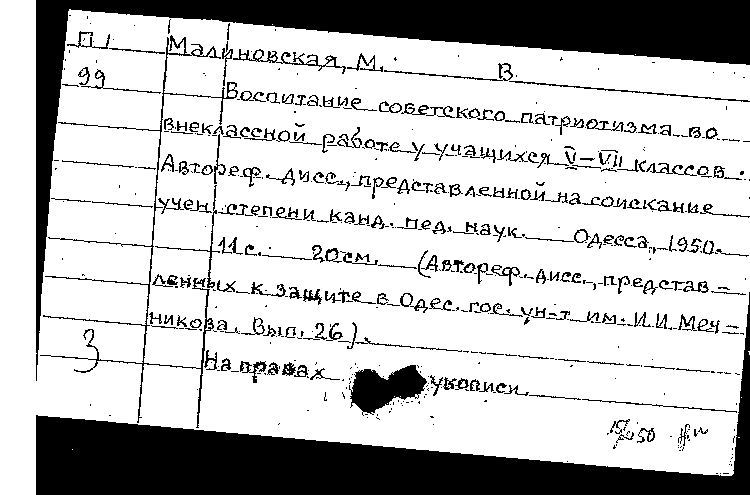 П1 Малиновская, М. В
99 Воспитание советского патриотизма во
внеклассной работе у учащихся V–VII классов.
Автореф. дисс., представленной на соискание
учен. степени канд. пед. наук. Одесса, 1950.
11с. 20см. (Автореф. дисс., представ–
ленных к защите в Одес. гос. ун-т им. И.И Меч–
никова. Вып. 26).
3 На правах укописи.
50